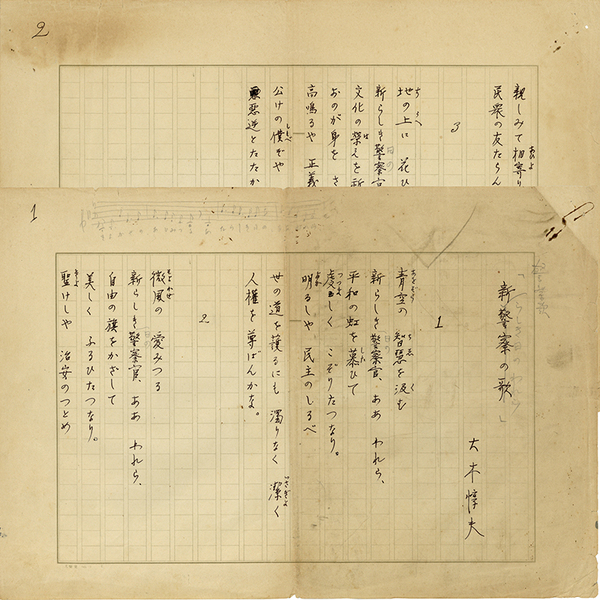 1
「新警察の歌」
大木惇夫
1
青空の 智慧を汲む
新らしき警察官、ああ われら、
平和の虹を慕ひて
虔しく こぞりたつなり。
明るしや 民主のしるべ
世の道を護るにも 濁りなく 潔く
人権を尊ばんかな。
2
微風の 愛みつる
新らしき警察官、ああ われら、
自由の旗をかざして
美しく ふるひたつなり。
聖けしや 治安のつとめ
2
親しみて相寄り
民衆の友たらん
3
地の上に 花ひ
新らしき警察官
文化の栄えを
おのが身を さ
高鳴るや 正義
公けの僕ぞや
悪逆とたたか